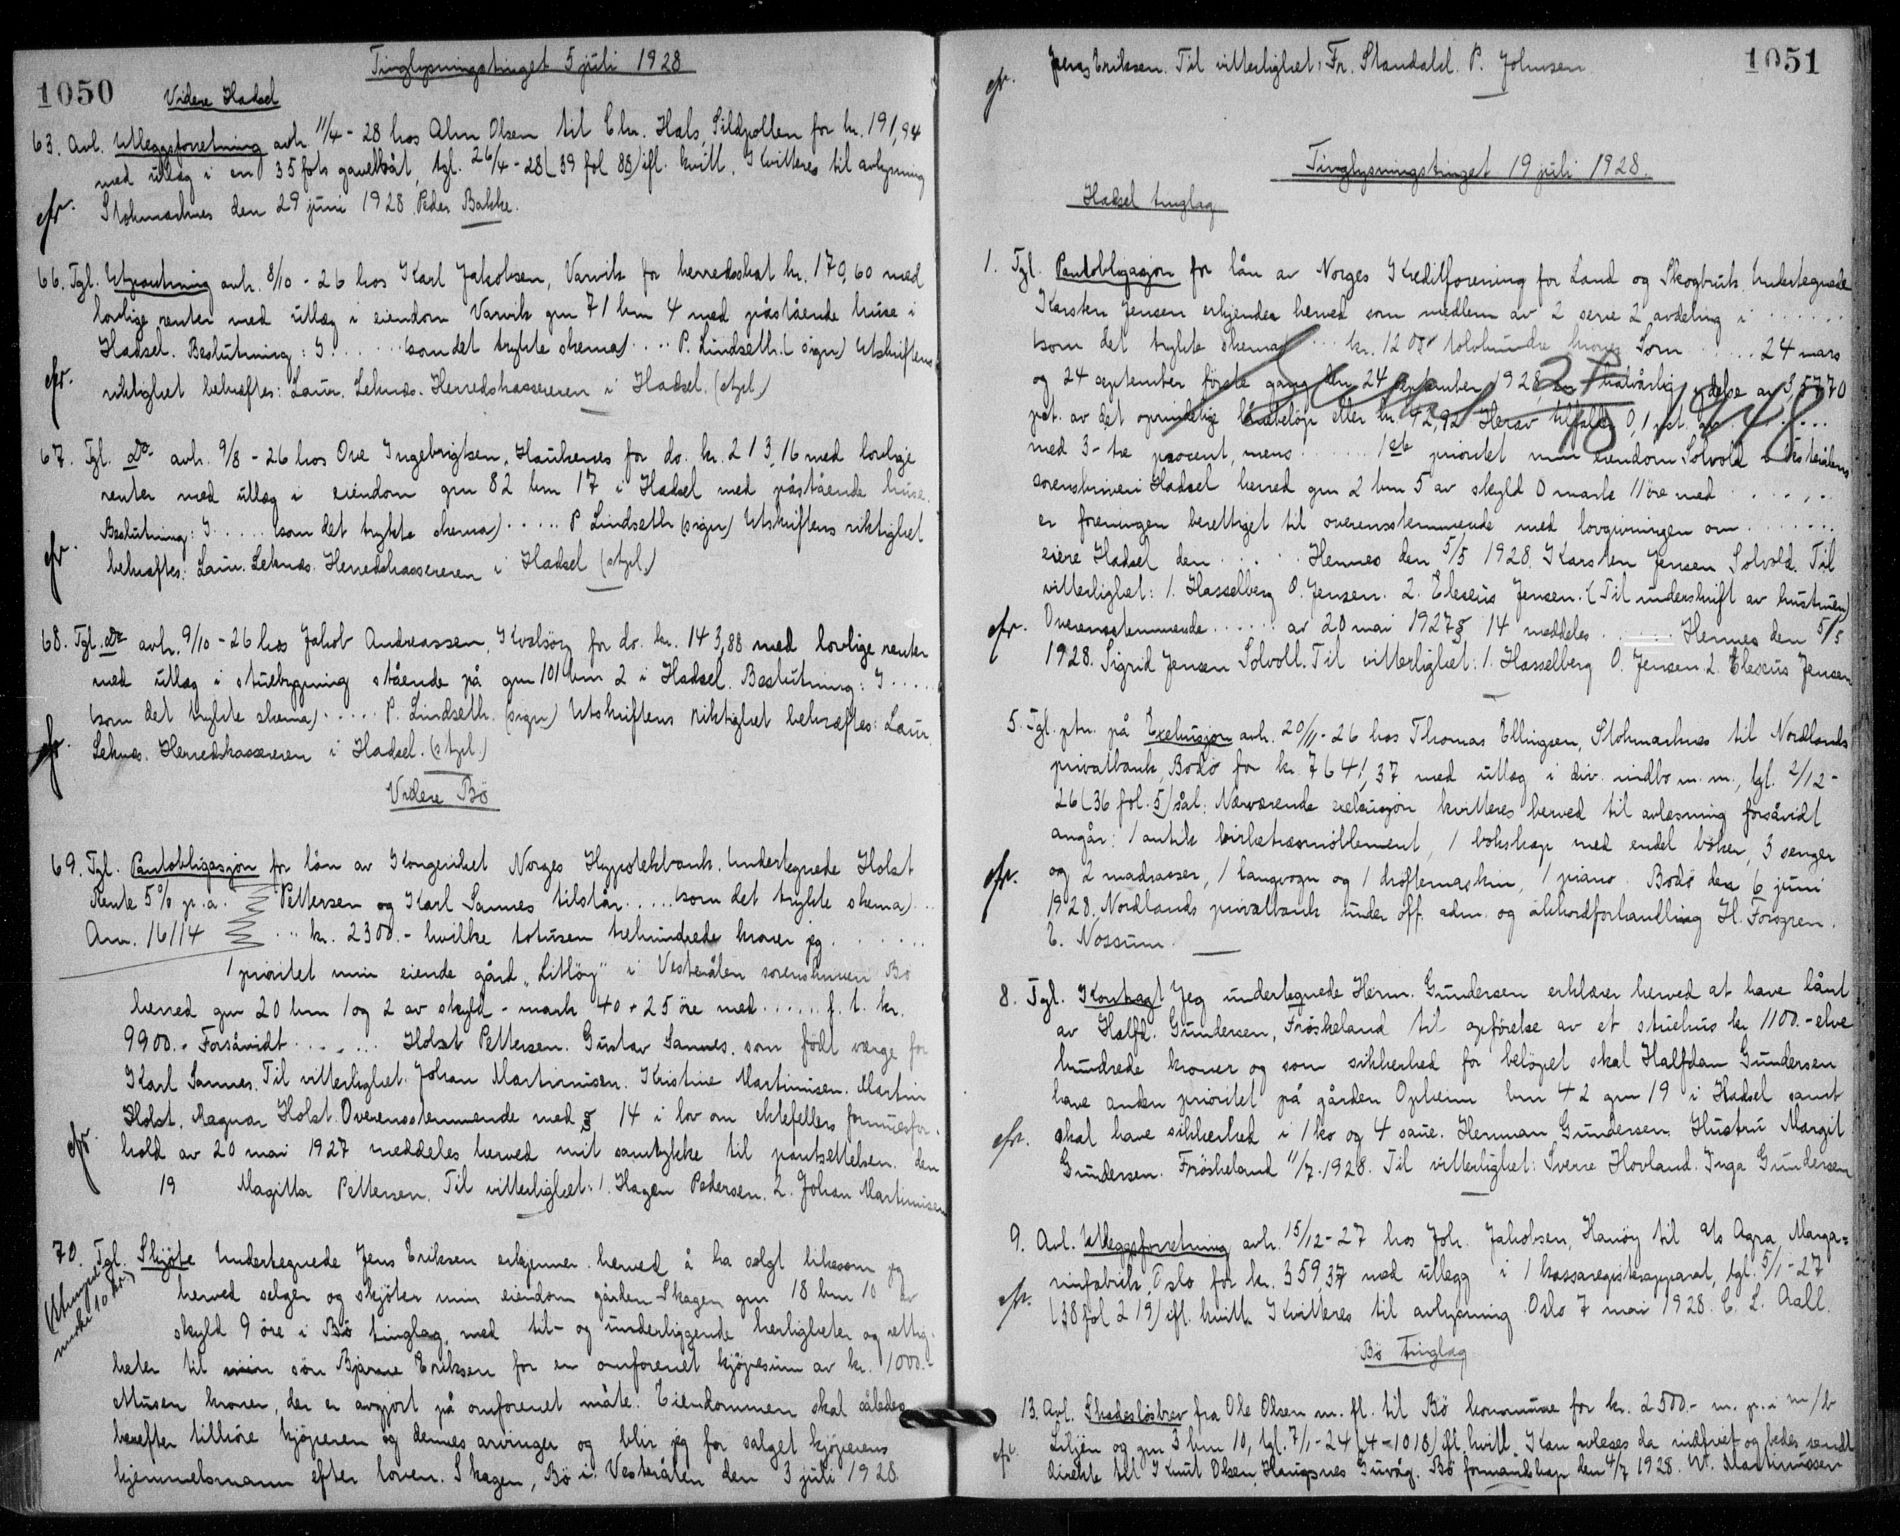 1050
Tinglysningstinget 5 juli 1928
Videre Hadsel
63. Avl. Utleggsforretning avh. 11/4 - 28 hos Alm Olsen til Chr. Hals, Sildpollen for kr. 191,94
med utlæg i en 35 fots gavelbåt, tgl. 26/4 - 28 (39 fol 88) ifl. kvitt. Kvitteres til avlysning
cfr. Stokmarknes den 29 juni 1928 Peder Bakke.
66. Tgl. Utpantning avh. 8/10 - 26 hos Karl Jakobsen, Varvik for herredsskat kr. 170,60 med
lovlige renter med utlæg i eiendom Varvik gnr 71 bnr 4 med påstående huse i
Hadsel. Beslutning: I ...... (som det trykte skema) ..... P. Lindseth. (sign) Utskriftens
cfr. riktighet bekræftes: Laur. Leknes. Herredskassereren i Hadsel. (stpl)
67. Tgl. do avh. 9/8 - 26 hos Ove Ingebrigtsen, Haukenes for do. kr. 213,16 med lovlige
renter med utlæg i eiendom gnr 82 bnr 17 i Hadsel med påstående huse.
Beslutning: I ..... (som det trykte skema) ..... P Lindseth (sign) Utskriftens riktighet
cfr. bekræftes: Laur. Leknes. Herredskassereren i Hadsel (stpl.)
68. Tgl. do avh. 9/10 - 26 hos Jakob Andreassen, Kvalsöy for do. kr. 143,88 med lovlige renter
med utlæg i stuebygning stående på gnr 101 bnr 2 i Hadsel. Beslutning: I .....
(som det trykte skema) ..... P. Lindseth. (sign) Utskriftens riktighet bekræftes: Laur.
cfr. Leknes. Herredskassereren i Hadsel. (stpl.)
Videre Bö
69. Tgl. Pantobligasjon for lån av Kongeriket Norges Hypotekbank. Undertegnede Holst
Rente 5% p.a. Pettersen og Karl Sannes tilstår ..... (som det trykte skema) ...
Anr. 16114 ... kr. 2300.- hvilke totusen trehundrede kroner jeg .......
1 prioritet min eiende gård "Litlöy" i Vesterålen sorenskriveri Bö
herred gnr 20 bnr 1 og 2 av skyld - mark 40 + 25 öre med ...... f. t. kr.
9900.- Forsåvidt ....... Holst Pettersen. Gustav Sannes. som födt værge for
Karl Sannes. Til vitterlighet. Johan Martinusen. Kristine Martinisen. Martin
Holst. Ragnar Holst. Overensstemmende med § 14 i lov om ektefellers formuesfor-
cfr. hold av 20 mai 1927 meddeles herved mit samtykke til pantsettelsen. den
19 Magitta Pettersen. Til vitterlighet: 1. Hagen Pedersen. 2. Johan Martinusen
70. Tgl. Skjöte Undertegnede Jens Eriksen erkjenner herved å ha solgt likesom jeg
(Stempel merke 10 kr.)
herved selger og skjöter min eiendom gården Skagen gnr 18 bnr 10 av
skyld 9 öre i Bö tinglag, med til- og underliggende herligheter og rettig-
heter til min sön Bjarne Eriksen for en omforenet kjöpesum av kr. 1000.-
ettusen kroner, der er avgjort på omforenet måte. Eiendommen skal således
herefter tilhöre kjöperen og dennes arvinger og blir jeg for salget kjöperens
hjemmelsmann efter loven. Skagen, Bö i Vesterålen den 3 juli 1928.
1051
cfr. Jens Eriksen. Til vitterlighet: Fr. Standahl. P. Johnsen
Tinglysningstinget 19 juli 1928.
Hadsel tinglag
1. Tgl. Pantobligasjon for lån av Norges Kreditforening for Land og Skogbruk. Undertegnede
Karsten Jensen erkjender herved som medlem av 2 serie 2 avdeling i ......
(som det trykte skema) ... kr. 1200.- tolvhundre kroner Som ..... 24 mars
og 24 september förste gang den 24 september 1928 en halvårlig ydelse av 3,5770
pct. av det oprindelige lånebelöp eller kr. 42,92 Herav tilfalder 0,1 pct. av .....
med 3-tre procent, mens ...... 1ste prioritet min eiendom Solvold i Vesterålens
sorenskriveri Hadsel herred gnr 2 bnr 5 av skyld 0 mark 11 öre med ......
er foreningen berettiget til overensstemmende med lovgivningen om .......
eiere Hadsel den ..... Hennes den 5/5 1928. Karsten Jensen Solvold. Til
vitterlighet: 1. Hasselberg O. Jensen. 2. Elesæus Jensen. (Til underskrift av hustruen)
cfr. Overensstemmende ...... av 20 mai 1927 § 14 meddeles ...... Hennes den 5/5
1928. Sigrid Jensen Solvoll. Til vitterlighet: 1. Hasselberg O. Jensen 2. Elesæus Jensen
5. Tgl. ptn. på Exekusjon avh. 20/11 - 26 hos Thomas Ellingsen, Stokmarknes til Nordlands
privatbank, Bodö for kr. 7641,37 med utlæg i div. indbo m.m., tgl. 2/12 -
26 (36 fol. 5) sål: Nærværende exekusjon kvitteres herved til avlesning forsåvidt
angår: 1 antik birketræsmöblement, 1 bokskap med endel böker, 3 senger
cfr. og 2 madrasser, 1 langvogn og 1 dröftemaskin, 1 piano. Bodö den 6 juni
1928. Nordlands privatbank under off. adm. og akkordforhandling H. Forsgren.
E. Nossum.
8. Tgl. Kontrakt Jeg undertegnede Herm. Gundersen erklærer herved at have lånt
av Halfd. Gundersen, Fröskeland til opförelse av et stuehus kr 1100.- elve
hundrede kroner og som sikkerhed for belöpet skal Halfdan Gundersen
have anden prioritet på gården Opheim bnr 42 gnr 19 i Hadsel samt
cfr. skal have sikkerhed i 1 ko og 4 saue. Herman Gundersen. Hustru Margit
Gundersen. Fröskeland 11/7. 1928. Til vitterlighet: Sverre Hovland. Inga Gundersen
9. Avl. Utleggsforretning avh. 15/12 - 27 hos Joh. Jakobsen, Hanöy til A/s Agra Marga=
rinfabrik, Oslo for kr. 359,37 med utlegg i 1 kassaregisterapparat, tgl. 5/1 - 27
cfr. (38 fol 219) ifl. kvitt. Kvitteres til avlysning. Oslo 7 mai 1928. C. L. Aall.
Bö Tinglag
13. Avl. Skadeslösbrev fra Ole Olsen m. fl. til Bö kommune for kr. 2500.- m. p. i m/b
cfr. Liljen og gnr 3 bnr 10, tgl. 7/1 - 24 (4 - 1018) ifl. kvitt. Kan avleses da indfriet og bedes sendt
direkte til Knut Olsen, Haugsnes Guvåg. Bö formandskap den 4/7 1928. W. Martinussen